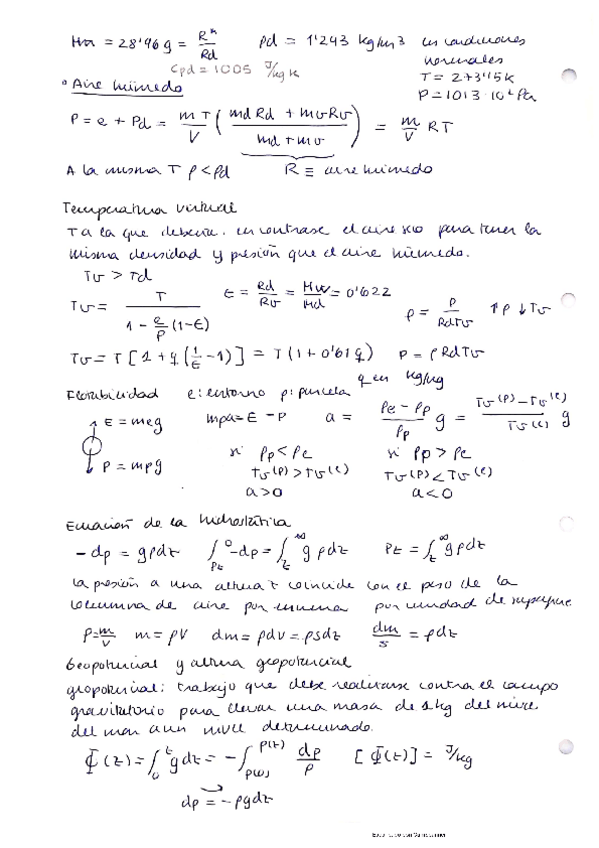 Ma = 28'96 g = R*/Rd    ρd = 1'293 kg/m³ en condiciones normales
Cpd = 1005 J/kg K    T = 273'15K
P = 1013·10² Pa
° Aire húmedo
P = e + Pd = mT/V ( (md Rd + mv Rv) / (md + mv) ) = m/V RT
A la misma T ρ < ρd    R ≡ aire húmedo
Temperatura virtual
T a la que debería encontrarse el aire seco para tener la
misma densidad y presión que el aire húmedo.
Tv > Td
Tv = T / (1 - e/P (1-ε))    ε = Rd/Rv = Mw/Md = 0'622    ρ = P/RdTv    ↑ρ ↓Tv
Tv = T [1 + q (1/ε - 1)] = T (1 + 0'61 q)    P = ρ Rd Tv
q en kg/kg
Flotabilidad    e: entorno    p: parcela
E = meg    mpa = E - P    a = (ρe - ρp)/ρp g = (Tv(p) - Tv(e))/Tv(e) g
P = mpg    si ρp < ρe    si ρp > ρe
Tv(p) > Tv(e)    Tv(p) < Tv(e)
a > 0    a < 0
Ecuación de la hidrostática
-dp = gρdz    ∫Pz⁰ -dp = ∫z^∞ g ρdz    Pz = ∫z^∞ gρdz
la presión a una altura z coincide con el peso de la
columna de aire por encima por unidad de superficie
ρ = m/V    m = ρV    dm = ρdv = ρsdz    dm/s = ρdz
Geopotencial y altura geopotencial
geopotencial: trabajo que debe realizarse contra el campo
gravitatorio para elevar una masa de 1kg del nivel
del mar a un nivel determinado.
Φ(z) = ∫₀^z gdz = -∫p(0)^p(z) dp/ρ    [Φ(z)] = J/kg
dp = -ρgdz